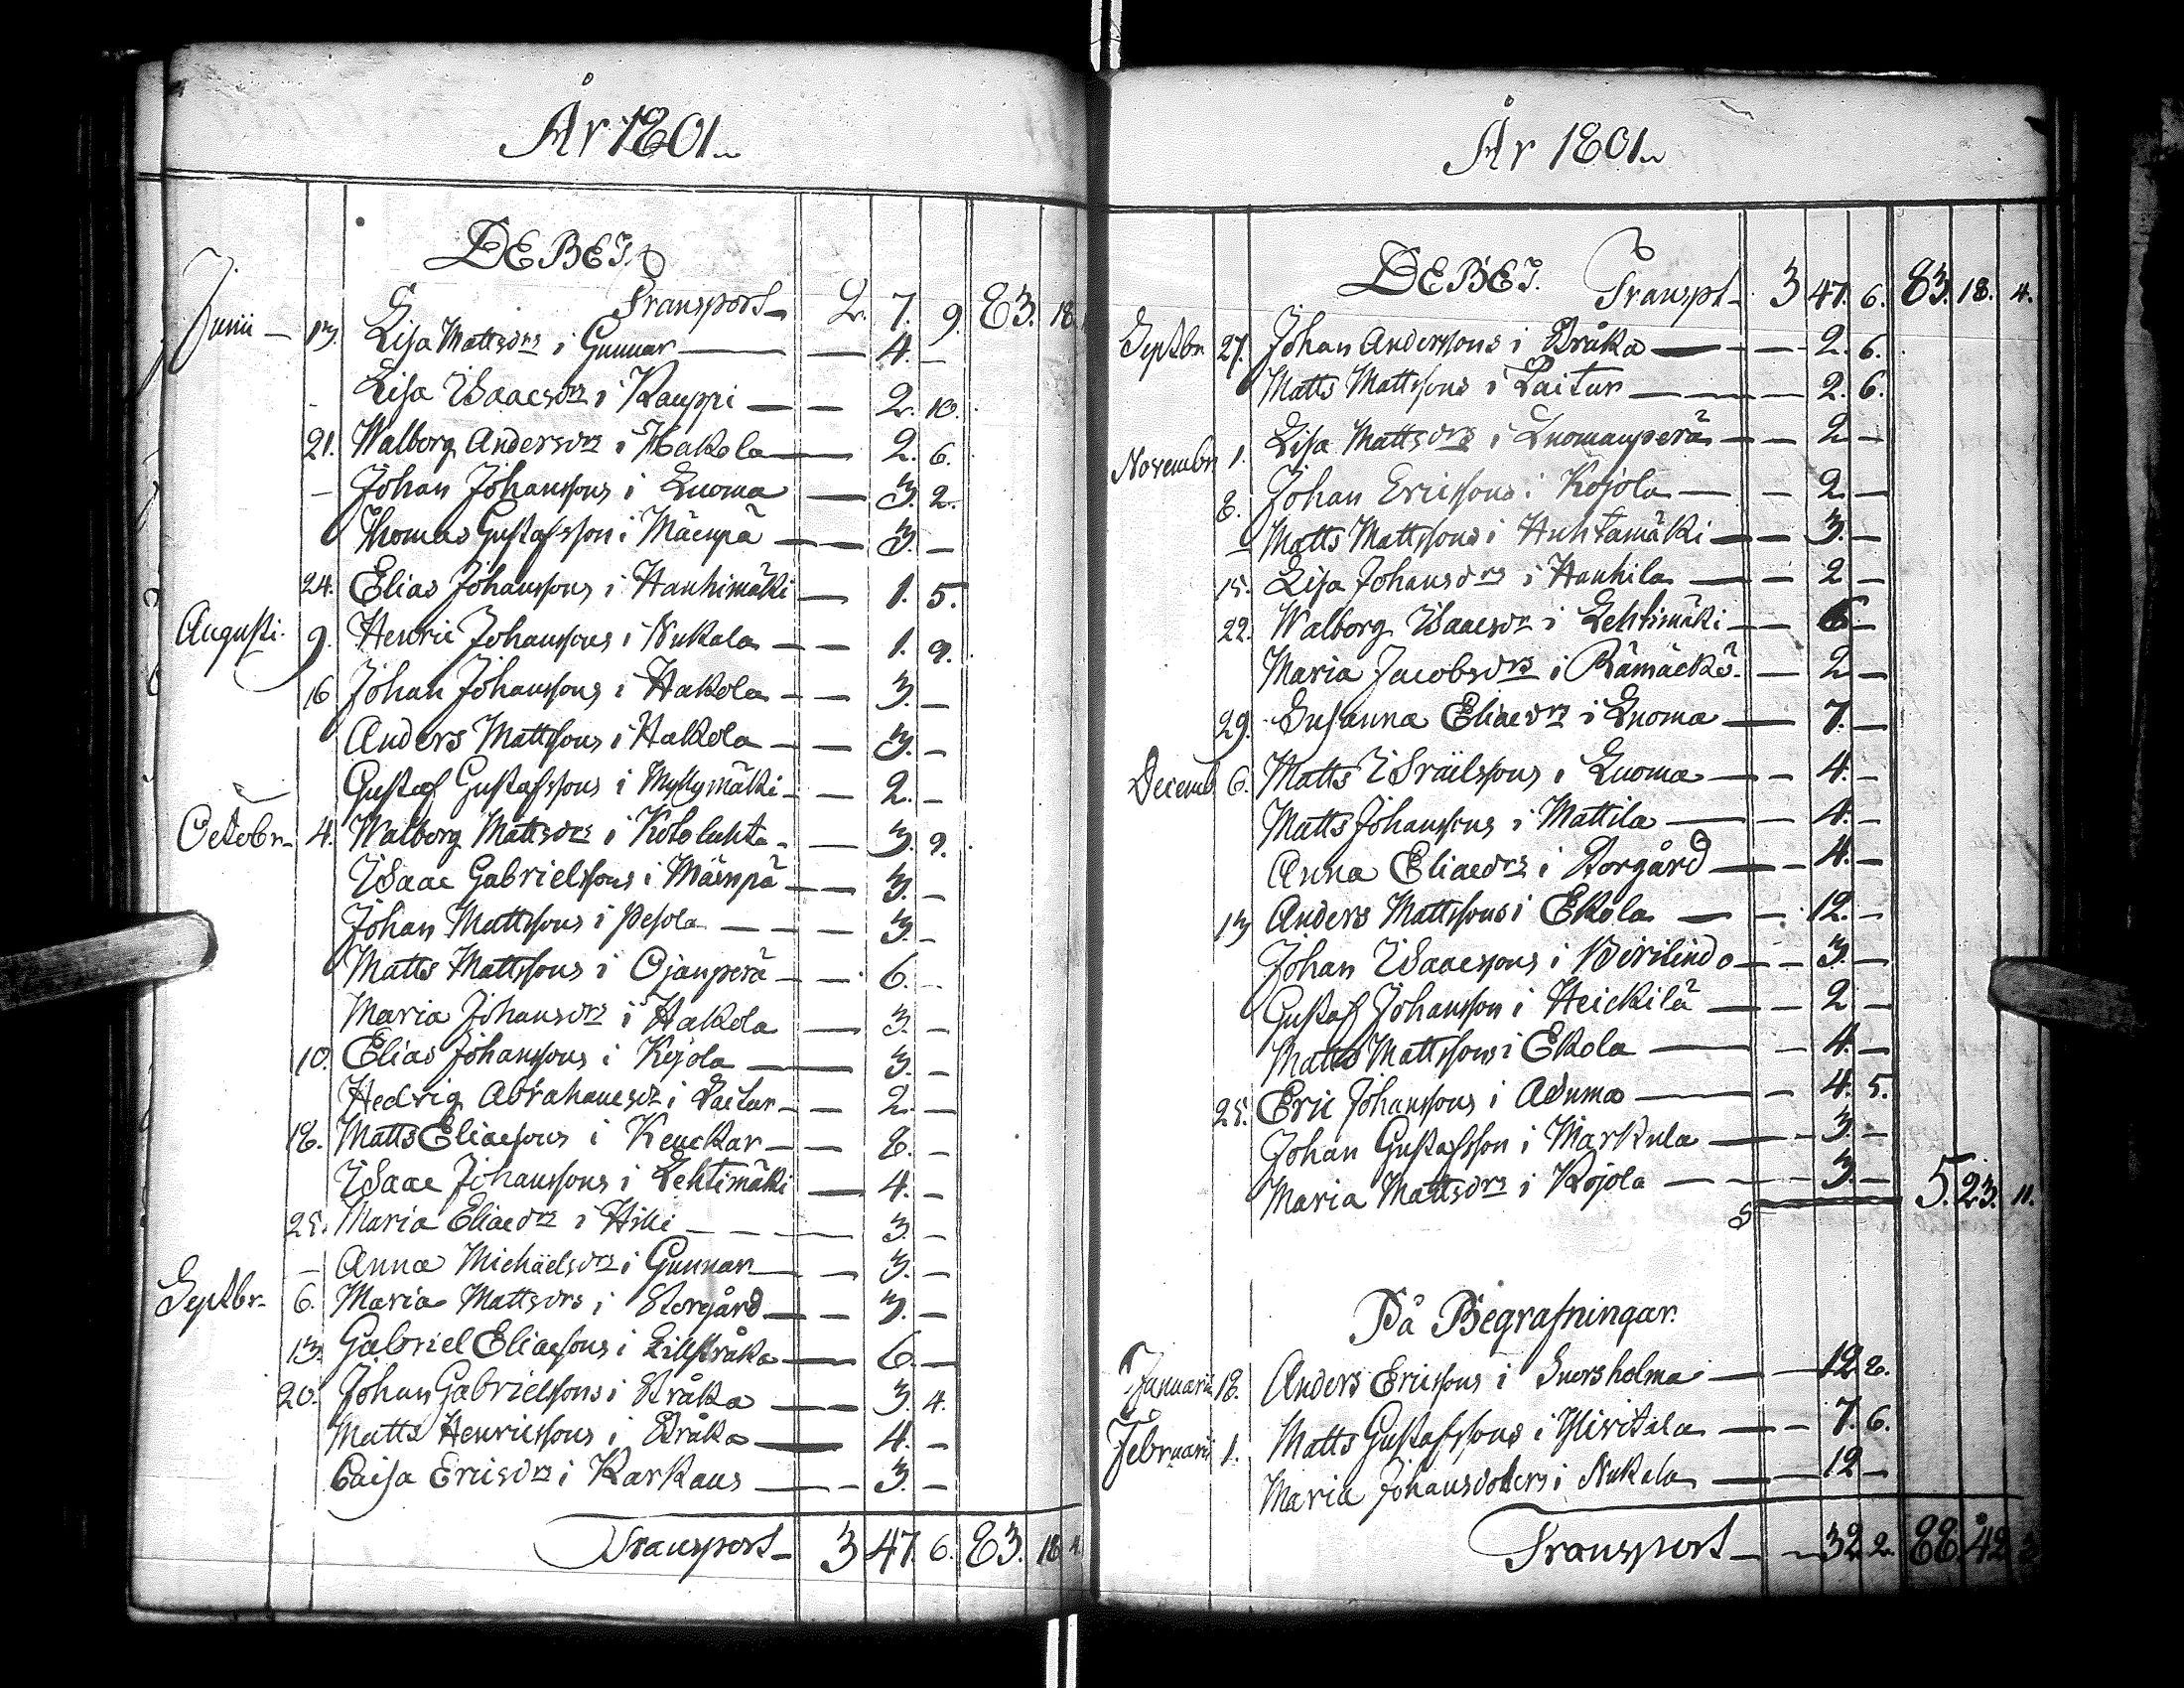 År 1801.
DEBET.
Transport 2. 7. 9. 83. 18.
Junii 13. Lisa Mattsdrs i Gunnar — 4. —
- Lisa Isaacsdrs i Kauppi — 2. 10.
21. Walborg Andersdrs i Hakola — 2. 6.
- Johan Johanssons i Luoma — 3. 2.
Thomas Gustafsson i Mäenpä — 3. —
24. Elias Johanssons i Hanhimäki — 1. 5.
Augusti 9. Henric Johanssons i Nukala — 1. 9.
16 Johan Johanssons i Hakola — 3. —
Anders Mattssons i Hakola — 3. —
Gustaf Gustafssons i Myllymäki — 2. —
Octobr. 4. Walborg Mattsdrs i Kotolahta — 3. 9.
Isaac Gabrielssons i Mäenpä — 3. —
Johan Mattssons i Pesola — 3. —
Matts Mattssons i Ojanperä — 6. —
Maria Johansdrs i Hakola — 3. —
10. Elias Johanssons i Kojola — 3. —
Hedvig Abrahamsdr i Laitur — 2. —
18. Matts Eliaesons i Kenckar — 8. —
Isaac Johanssons i Lehtimäki — 4. —
25. Maria Eliaedrs i — 3. —
— Anna Michäelsdrs i Gunnar — 3. —
Septbr. 6. Maria Mattsdrs i Storgård — 3. —
13. Gabriel Eliaesons i Lillbråka — 6. —
20. Johan Gabrielssons i Bråka — 3. 4.
Matts Henricssons i Bråka — 4. —
Caisa Ericsdrs i Karkaus — 3. —
Transport 3 47. 6. 83. 18 4.
År 1801.
DEBET. Transpt 3 47. 6. 83. 18. 4.
Septbr 27. Johan Anderssons i Bråka — 2. 6.
Matts Mattssons i Laitur — 2. 6.
Novembr 1. Lisa Mattsdrs i Luomanperä — 2 —
8. Johan Ericssons i Kojola — 2 —
- Matts Mattssons i Huhtamäki — 3. —
15. Lisa Johansdrs i Hanhila — 2 —
22. Walborg Isaacsdrs i Lehtimäki — 6 —
Maria Jacobsdrs i Rämäckö — 2 —
29. Susanna Eliaedrs i Luoma — 7. —
Decemb 6. Matts Israëlssons i Luoma — 4. —
Matts Johanssons i Mattila — 4. —
Anna Eliaedrs i Storgård — 4. —
13 Anders Mattssons i Ekola — 12. —
Johan Isaacssons i — 3. —
Gustaf Johansson i Heickilä — 2 —
Matts Mattssons i Ekola — 4. —
25. Eric Johanssons i Asuma — 4. 5.
Johan Gustafsson i Markula — 3. —
Maria Mattsdrs i Kojola — 3. — 5. 23. 11.
På Begrafningar.
Januarii 18. Anders Ericssons i — 12 8.
Februarii 1. Matts Gustafssons i Yliritala — 7. 6.
Maria Johansdotters i Nukala — 12 —
Transport — 32 2. 88 42